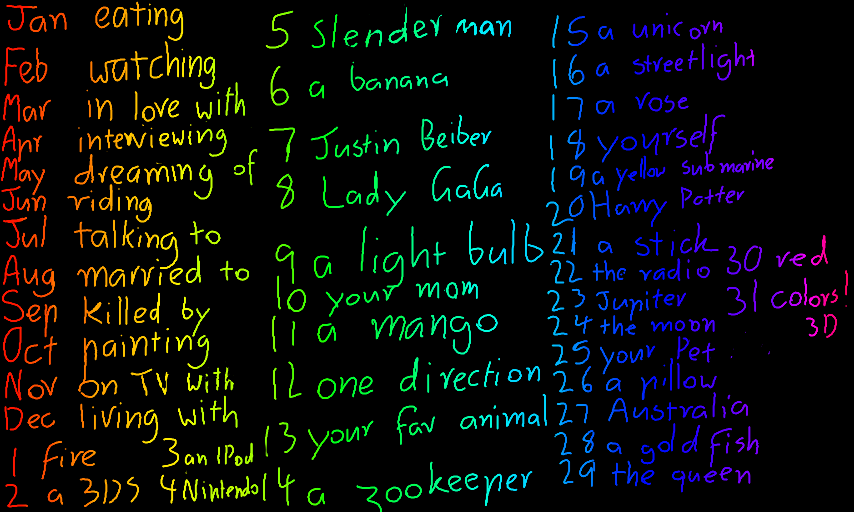 Jan eating
Feb watching
Mar in love with
Apr interviewing
May dreaming of
Jun riding
Jul talking to
Aug married to
Sep killed by
Oct painting
Nov on TV with
Dec living with
1 fire
2 a 3DS
3 an IPod
4 Nintendo
5 slender man
6 a banana
7 Justin Beiber
8 Lady GaGa
9 a light bulb
10 your mom
11 a mango
12 one direction
13 your fav animal
14 a zookeeper
15 a unicorn
16 a streetlight
17 a rose
18 yourself
19 a yellow submarine
20 Harry Potter
21 a stick
22 the radio
23 Jupiter
24 the moon
25 your Pet
26 a pillow
27 Australia
28 a goldfish
29 the queen
30 red
31 colors!
3D